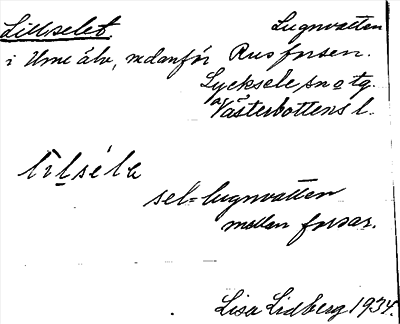 Lillselet. Lugnvatten
i Ume älv, nedanför Rusforsen.
Lycksele sn o tg.
Västerbottens l.
lìlséla
sel = lugnvatten
mellan forsar.
Lisa Lidberg 1934.